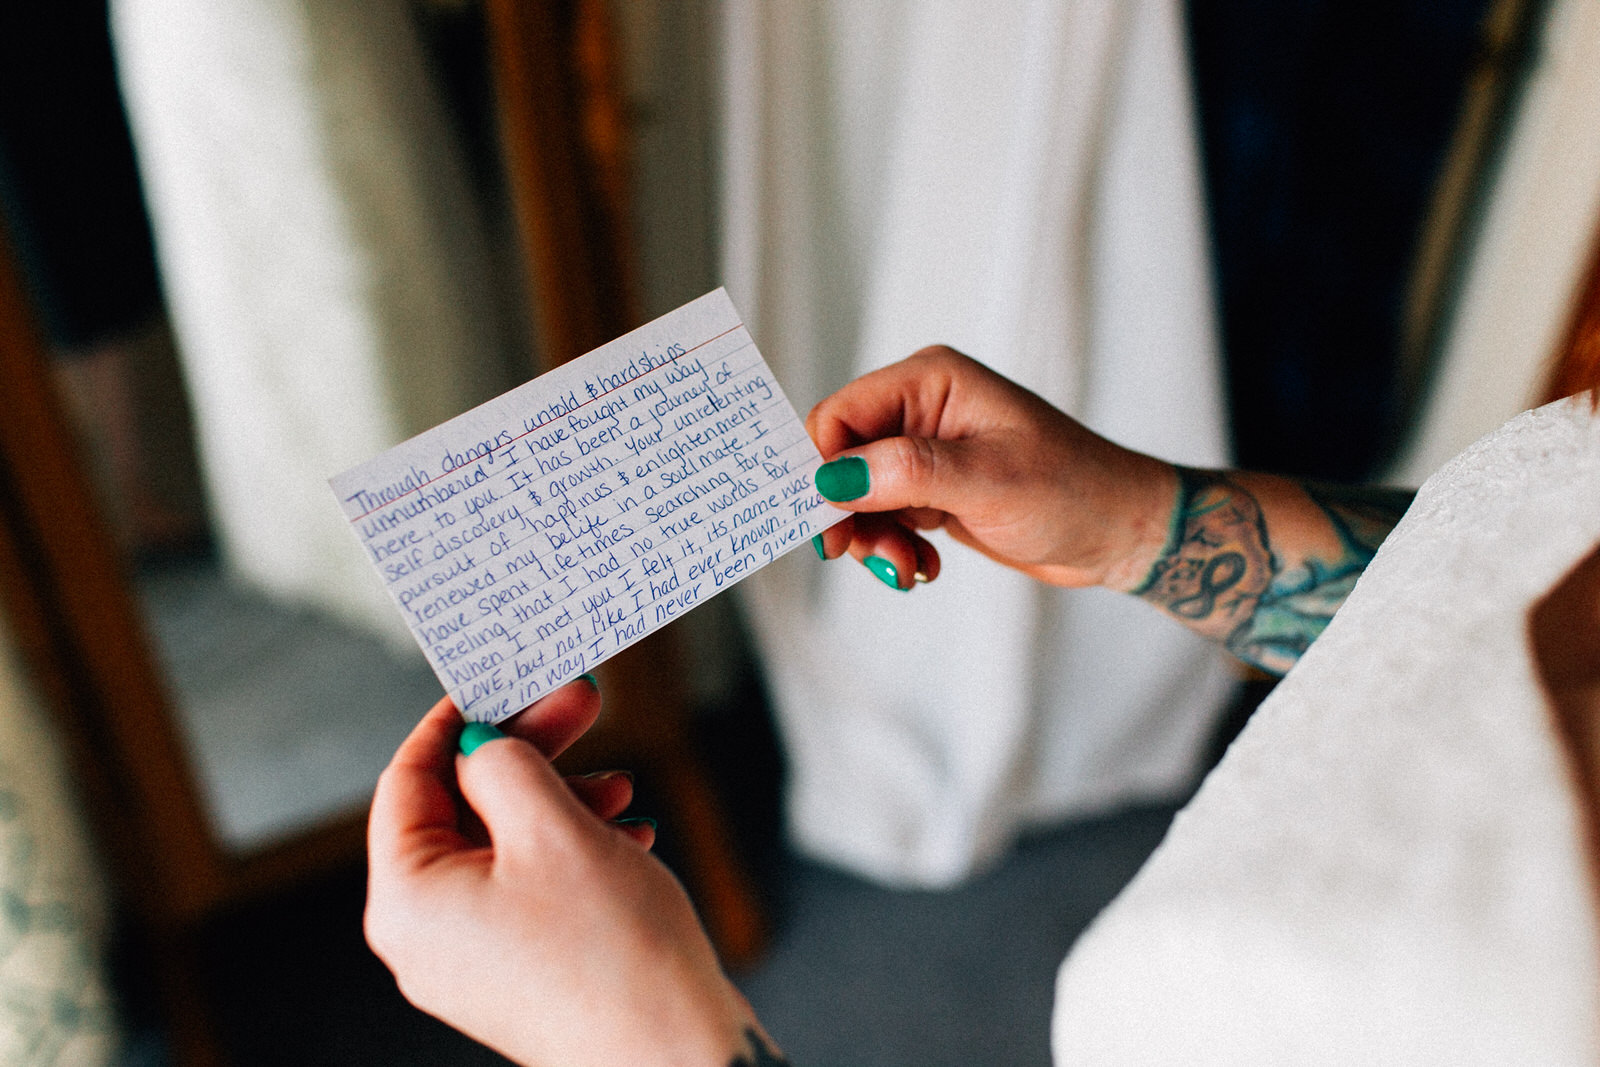 Through dangers untold & hardships
unnumbered I have fought my way
here, to you. It has been a journey of
self discovery & growth. Your unrelenting
pursuit of happines & enlightenment
renewed my belife in a soulmate. I
have spent lifetimes searching for a
feeling that I had no true words for.
When I met you I felt it, its name was
LOVE, but not like I had ever known. True
love in way I had never been given.